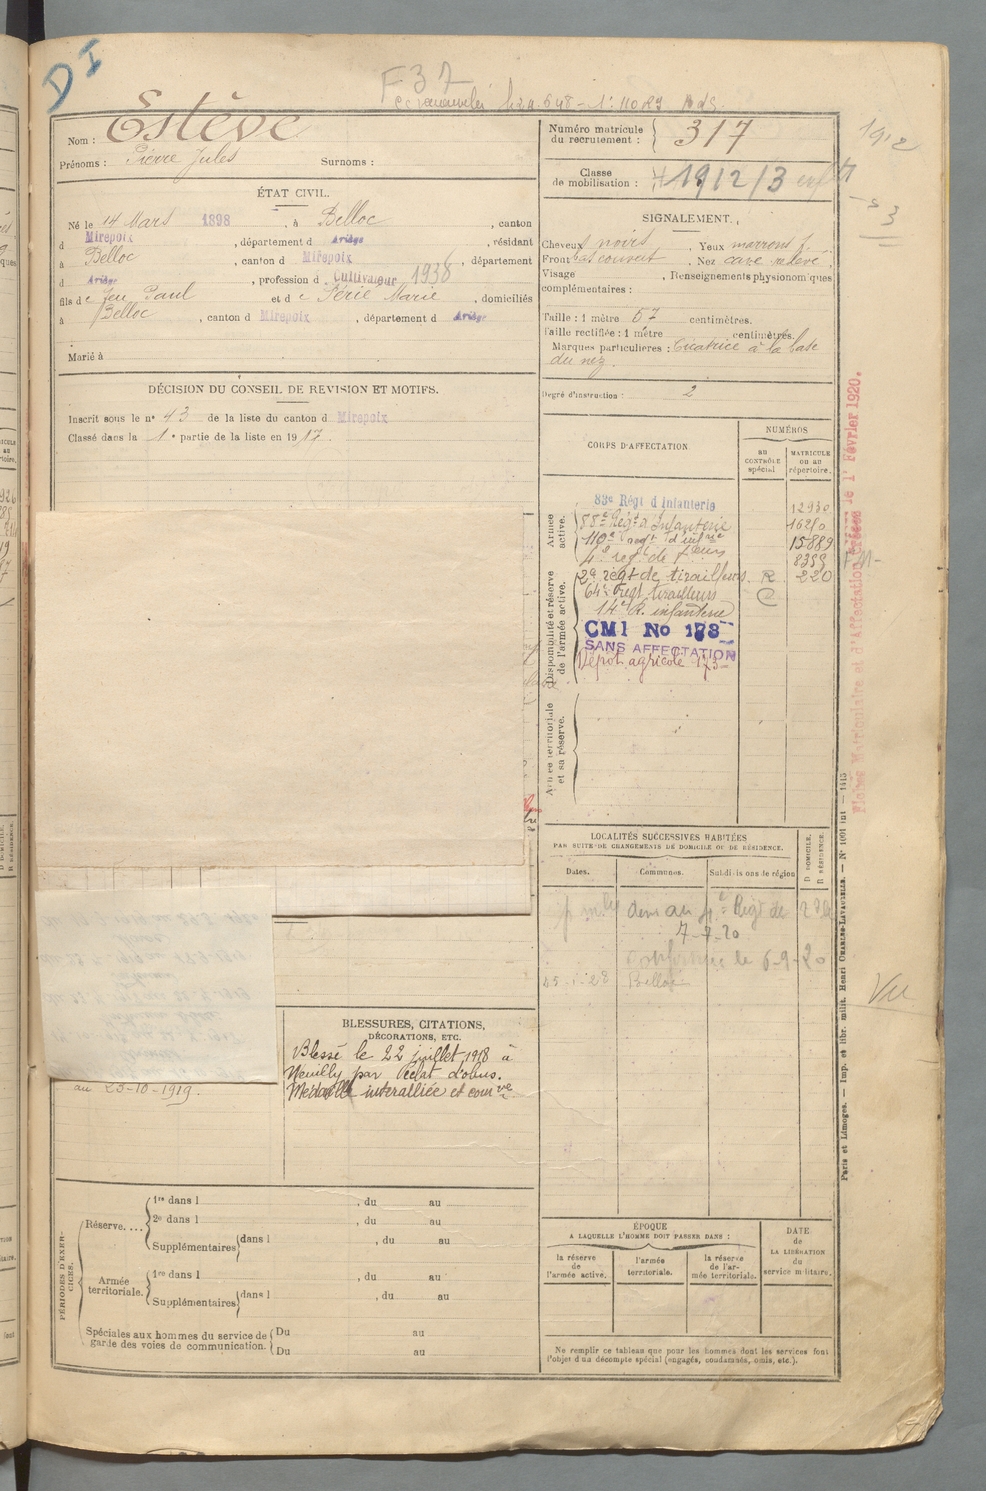 D I
F 37
Nom : Estève
Prénoms : Pierre Jules Surnoms :
ÉTAT CIVIL.
Né le 14 Mars 1898, à Belloc, canton
d Mirepoix, département d Ariège, résidant
à Belloc, canton d Mirepoix, département
d Ariège, profession d Cultivateur 1936
fils de feu Paul et de Périe Marie, domiciliés
à Belloc, canton d Mirepoix, département d Ariège
Marié à
DÉCISION DU CONSEIL DE REVISION ET MOTIFS.
Inscrit sous le n° 43 de la liste du canton d Mirepoix
Classé dans la 1e partie de la liste en 1917.
au 25-10-1919.
BLESSURES, CITATIONS,
DÉCORATIONS, ETC.
Blessé le 22 juillet 1918 à
Neuilly par éclat d'obus.
Médaille interalliée et comve
PÉRIODES D'EXERCICES.
Réserve....
1re dans l , du au
2e dans l , du au
Supplémentaires dans l , du au
Armée territoriale.
1re dans l , du au
Supplémentaires dans l , du au
Spéciales aux hommes du service de garde des voies de communication.
Du au
Du au
Numéro matricule du recrutement : 317
1912
Classe de mobilisation : 1912/3
SIGNALEMENT.
Cheveux noirs, Yeux marrons
Front bas couvert, Nez cave relevé
Visage , Renseignements physionomiques
complémentaires :
Taille : 1 mètre 67 centimètres.
Taille rectifiée : 1 mètre centimètres.
Marques particulières : Cicatrice à la base
du nez.
Degré d'instruction : 2
CORPS D'AFFECTATION
NUMÉROS
au CONTRÔLE spécial
MATRICULE ou au répertoire.
Armée active.
83e Régt d'Infanterie 12930
88e Régt d'Infanterie 16210
110e regt d'infrie 15889
4e regt de trieurs 8359
Disponibilité et réserve de l'armée active.
2e régt de tirailleurs R 220
64e Regt tirailleurs C
14e R. infanterie
CMI No 173
SANS AFFECTATION
Dépôt agricole 173
Armée territoriale et sa réserve.
LOCALITÉS SUCCESSIVES HABITÉES
PAR SUITE DE CHANGEMENTS DE DOMICILE OU DE RÉSIDENCE.
Dates. Communes. Subdivisions de région
D DOMICILE. R RÉSIDENCE.
7-7-20
le 6-9-20
Belloc
Vu
ÉPOQUE
A LAQUELLE L'HOMME DOIT PASSER DANS :
la réserve de l'armée active.
l'armée territoriale.
la réserve de l'armée territoriale.
DATE de LA LIBÉRATION du service militaire.
Ne remplir ce tableau que pour les hommes dont les services font
l'objet d'un décompte spécial (engagés, condamnés, omis, etc.).
Fiches Matriculaire et d'Affectation créées le 1er Février 1920.
Paris et Limoges. — Imp. et libr. milit. Henri CHARLES-LAVAUZELLE. — N° 1001